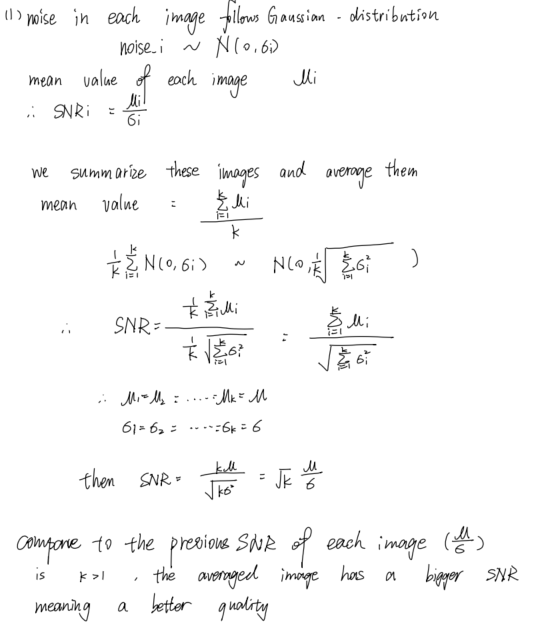 (1) noise in each image follows Gaussian - distribution
noise_i ~ N(0, σi)
mean value of each image μi
∴ SNRi = μi / σi
we summarize these images and average them
mean value = \frac{\sum_{i=1}^{k} μi}{k}
\frac{1}{k} \sum_{i=1}^{k} N(0, σi) ~ N(0, \frac{1}{k} \sqrt{\sum_{i=1}^{k} σi^2} )
∴ SNR = \frac{\frac{1}{k} \sum_{i=1}^{k} μi}{\frac{1}{k} \sqrt{\sum_{i=1}^{k} σi^2}} = \frac{\sum_{i=1}^{k} μi}{\sqrt{\sum_{i=1}^{k} σi^2}}
∴ μ1 = μ2 = ..... μk = μ
σ1 = σ2 = ..... = σk = σ
then SNR = \frac{kμ}{\sqrt{kσ^2}} = \sqrt{k} \frac{μ}{σ}
compare to the previous SNR of each image (\frac{μ}{σ})
is k>1 , the averaged image has a bigger SNR
meaning a better quality